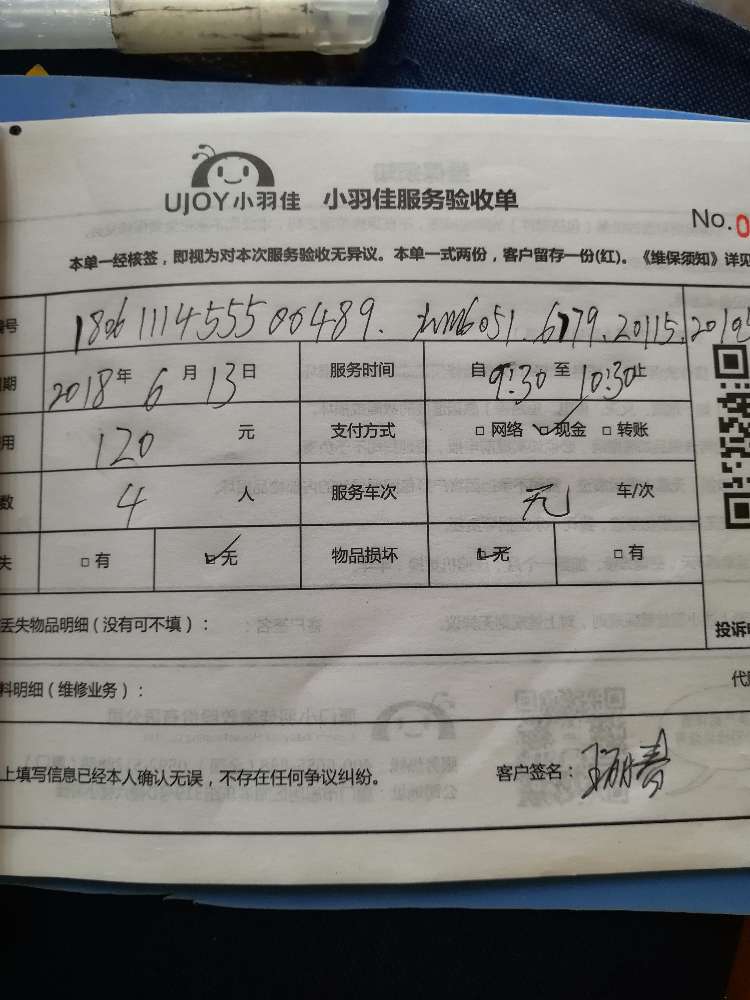 UJOY小羽佳 小羽佳服务验收单
No.0
本单一经核签，即视为对本次服务验收无异议。本单一式两份，客户留存一份(红)。《维保须知》详见
编号 1806111455500489. 6051.6779.20115.2019
期 2018年6月13日 服务时间 自9:30至10:30止
用 120元 支付方式 □网络 ☑现金 □转账
数 4人 服务车次 无 车/次
失 □有 ☑无 物品损坏 ☑无 □有
丢失物品明细（没有可不填）： 投诉
料明细（维修业务）：
上填写信息已经本人确认无误，不存在任何争议纠纷。 客户签名：